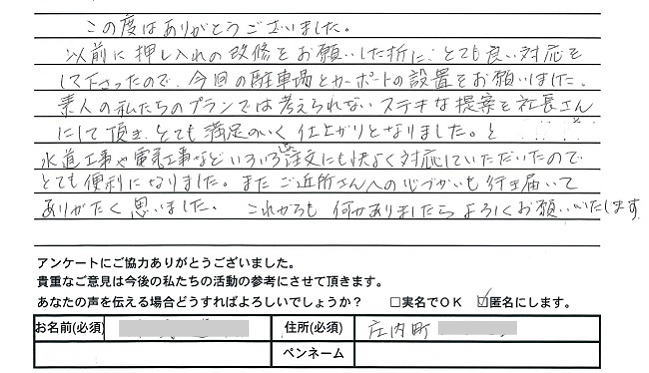 この度はありがとうございました。
以前に押し入れの改修をお願いした折に、とても良い対応を
して下さったので、今回の駐車場とカーポートの設置をお願いしました。
素人の私たちのプランでは考えられないステキな提案を社長さん
にして頂き、とても満足のいく仕上がりとなりました。
水道工事や電気工事などいろいろな注文にも快よく対応していただいたので
とても便利になりました。またご近所さんへの心づかいも行き届いて
ありがたく思いました。これからも何かありましたらよろしくお願いいたします
アンケートにご協力ありがとうございました。
貴重なご意見は今後の私たちの活動の参考にさせて頂きます。
あなたの声を伝える場合どうすればよろしいでしょうか？ □実名でOK ☑匿名にします。
お名前(必須) 住所(必須) 庄内町
ペンネーム